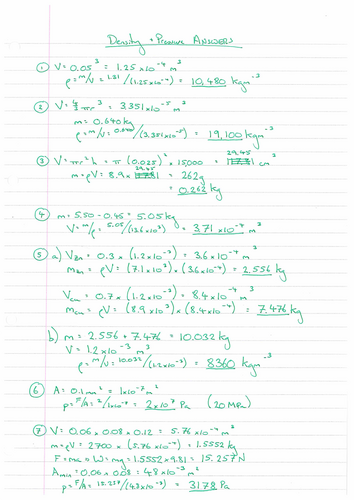 Density + Pressure ANSWERS
① V = 0.05³ = 1.25 x10⁻⁴ m³
ρ = m/V = 1.31/(1.25x10⁻⁴) = 10,480 kgm⁻³
② V = 4/3 πr³ = 3.351x10⁻⁵ m³
m = 0.640kg
ρ = m/V = 0.640/(3.351x10⁻⁵) = 19,100 kgm⁻³
③ V = πr²h = π (0.025)² x 15,000 = 29.45 cm³
m = ρV = 8.9 x 29.45 = 262g
= 0.262 kg
④ m = 5.50 - 0.45 = 5.05 kg
V = m/ρ = 5.05/(13.6x10³) = 3.71 x10⁻⁴ m³
⑤ a) VSn = 0.3 x (1.2x10⁻³) = 3.6x10⁻⁴ m³
mSn = ρV = (7.1x10³) x (3.6x10⁻⁴) = 2.556 kg
VCu = 0.7 x (1.2x10⁻³) = 8.4x10⁻⁴ m³
m = ρV = (8.9x10³) x (8.4x10⁻⁴) = 7.476 kg
b) m = 2.556 + 7.476 = 10.032 kg
V = 1.2x10⁻³ m³
ρ = m/V = 10.032/(1.2x10⁻³) = 8360 kgm⁻³
⑥ A = 0.1mm² = 1x10⁻⁷ m²
p = F/A = 2/1x10⁻⁷ = 2x10⁷ Pa (20 MPa)
⑦ V = 0.06 x 0.08 x 0.12 = 5.76 x10⁻⁴ m³
m = ρV = 2700 x (5.76 x10⁻⁴) = 1.5552 kg
F = ma ∴ W = mg = 1.5552 x 9.81 = 15.257N
Amin = 0.06 x 0.08 = 4.8x10⁻³ m²
p = F/A = 15.257/(4.8x10⁻³) = 3178 Pa